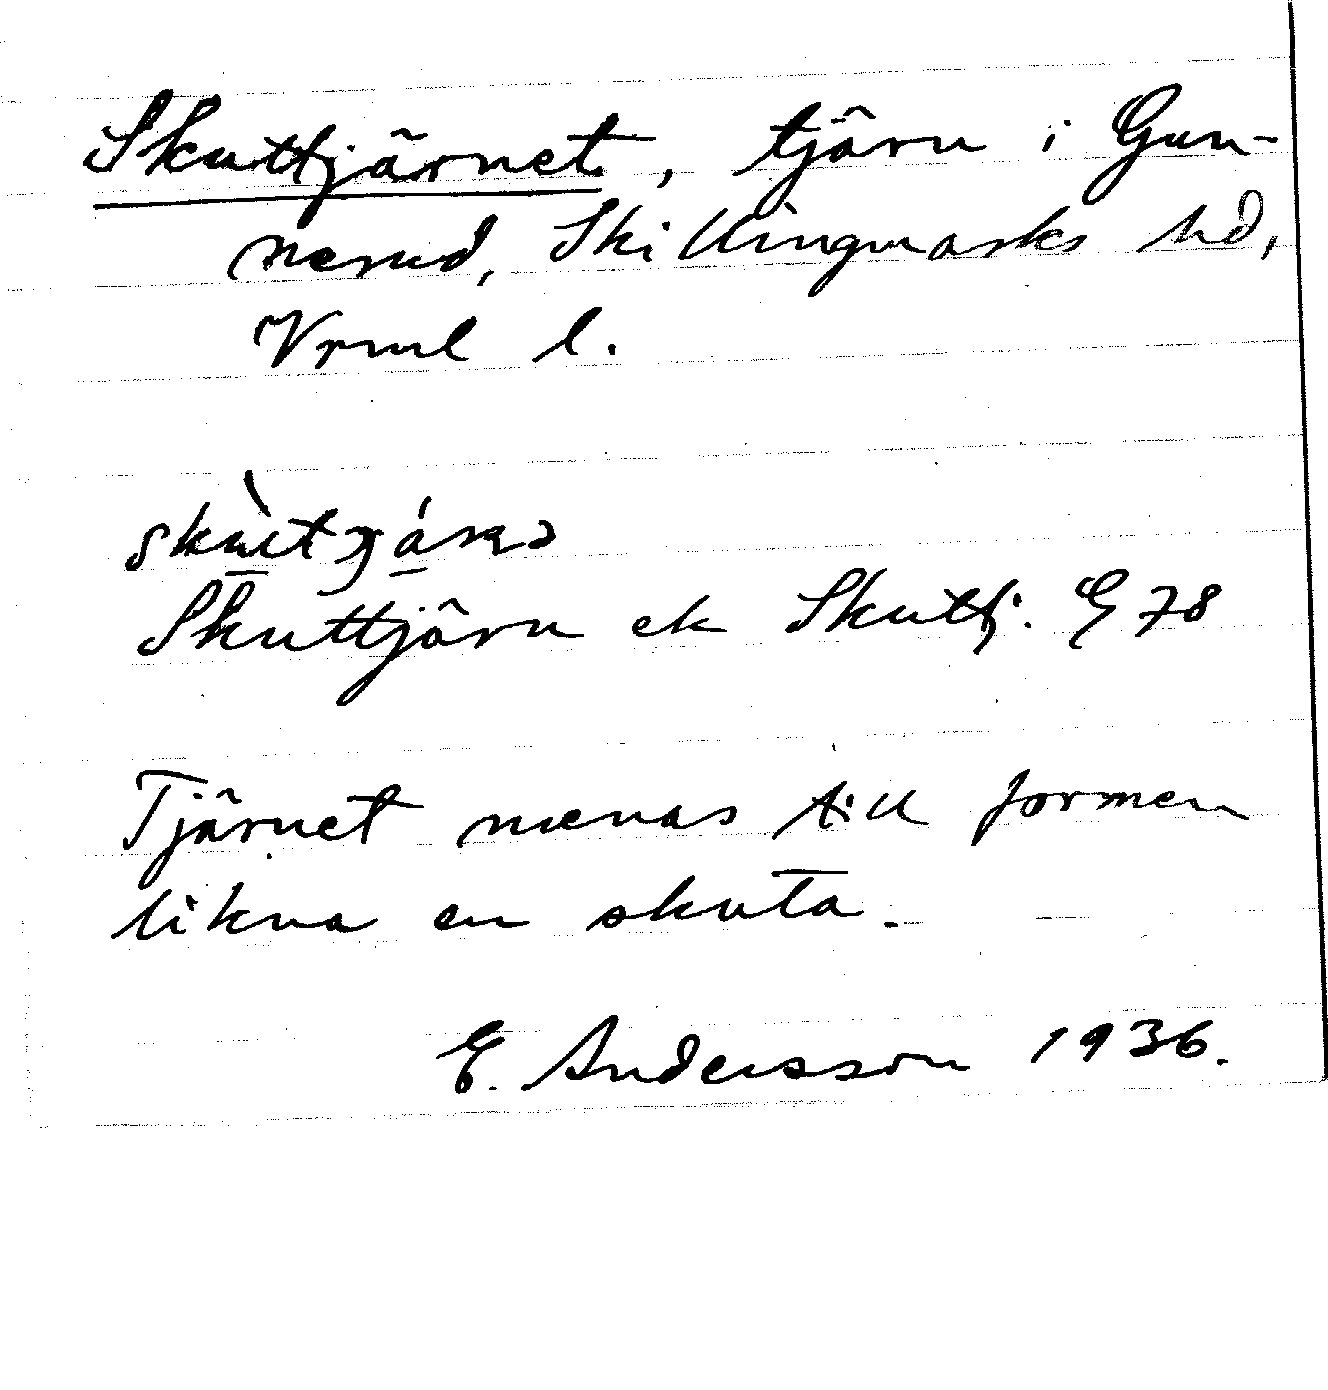 Skuttjärnet, tjärn i Gun-
nerud, Skillingmarks hd,
Vrml l.
Skuttjärn ek Skuttj. G 78
Tjärnet menas till formen
likna en skuta.
E. Andersson 1936.